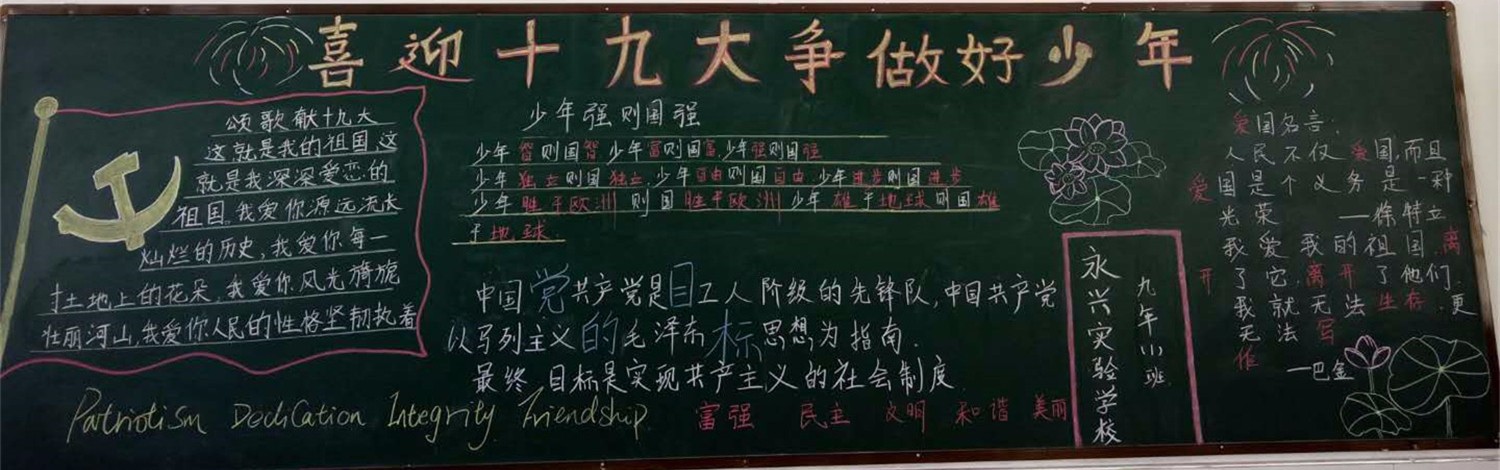 喜迎十九大争做好少年
颂歌献十九大
这就是我的祖国,这
就是我深深爱恋的
祖国。我爱你源远流长
灿烂的历史,我爱你每一
寸土地上的花朵,我爱你风光旖旎
壮丽河山,我爱你人民的性格坚韧执着
少年强则国强
少年智则国智,少年富则国富,少年强则国强
少年独立则国独立,少年自由则国自由,少年进步则国进步
少年胜于欧洲则国胜于欧洲少年雄于地球则国雄
于地球.
中国党共产党是目工人阶级的先锋队,中国共产党
以马列主义的毛泽东标思想为指南.
最终目标是实现共产主义的社会制度
Patriotism Dedication Integrity Friendship
富强 民主 文明 和谐 美丽
永兴实验学校
九年(1)班
爱国名言:
人民不仅爱国,而且
爱国是个义务是一种
光荣 —徐特立
我爱我的祖国,离
开了它,离开了他们.
我就无法生存.更
无法写
作 —巴金